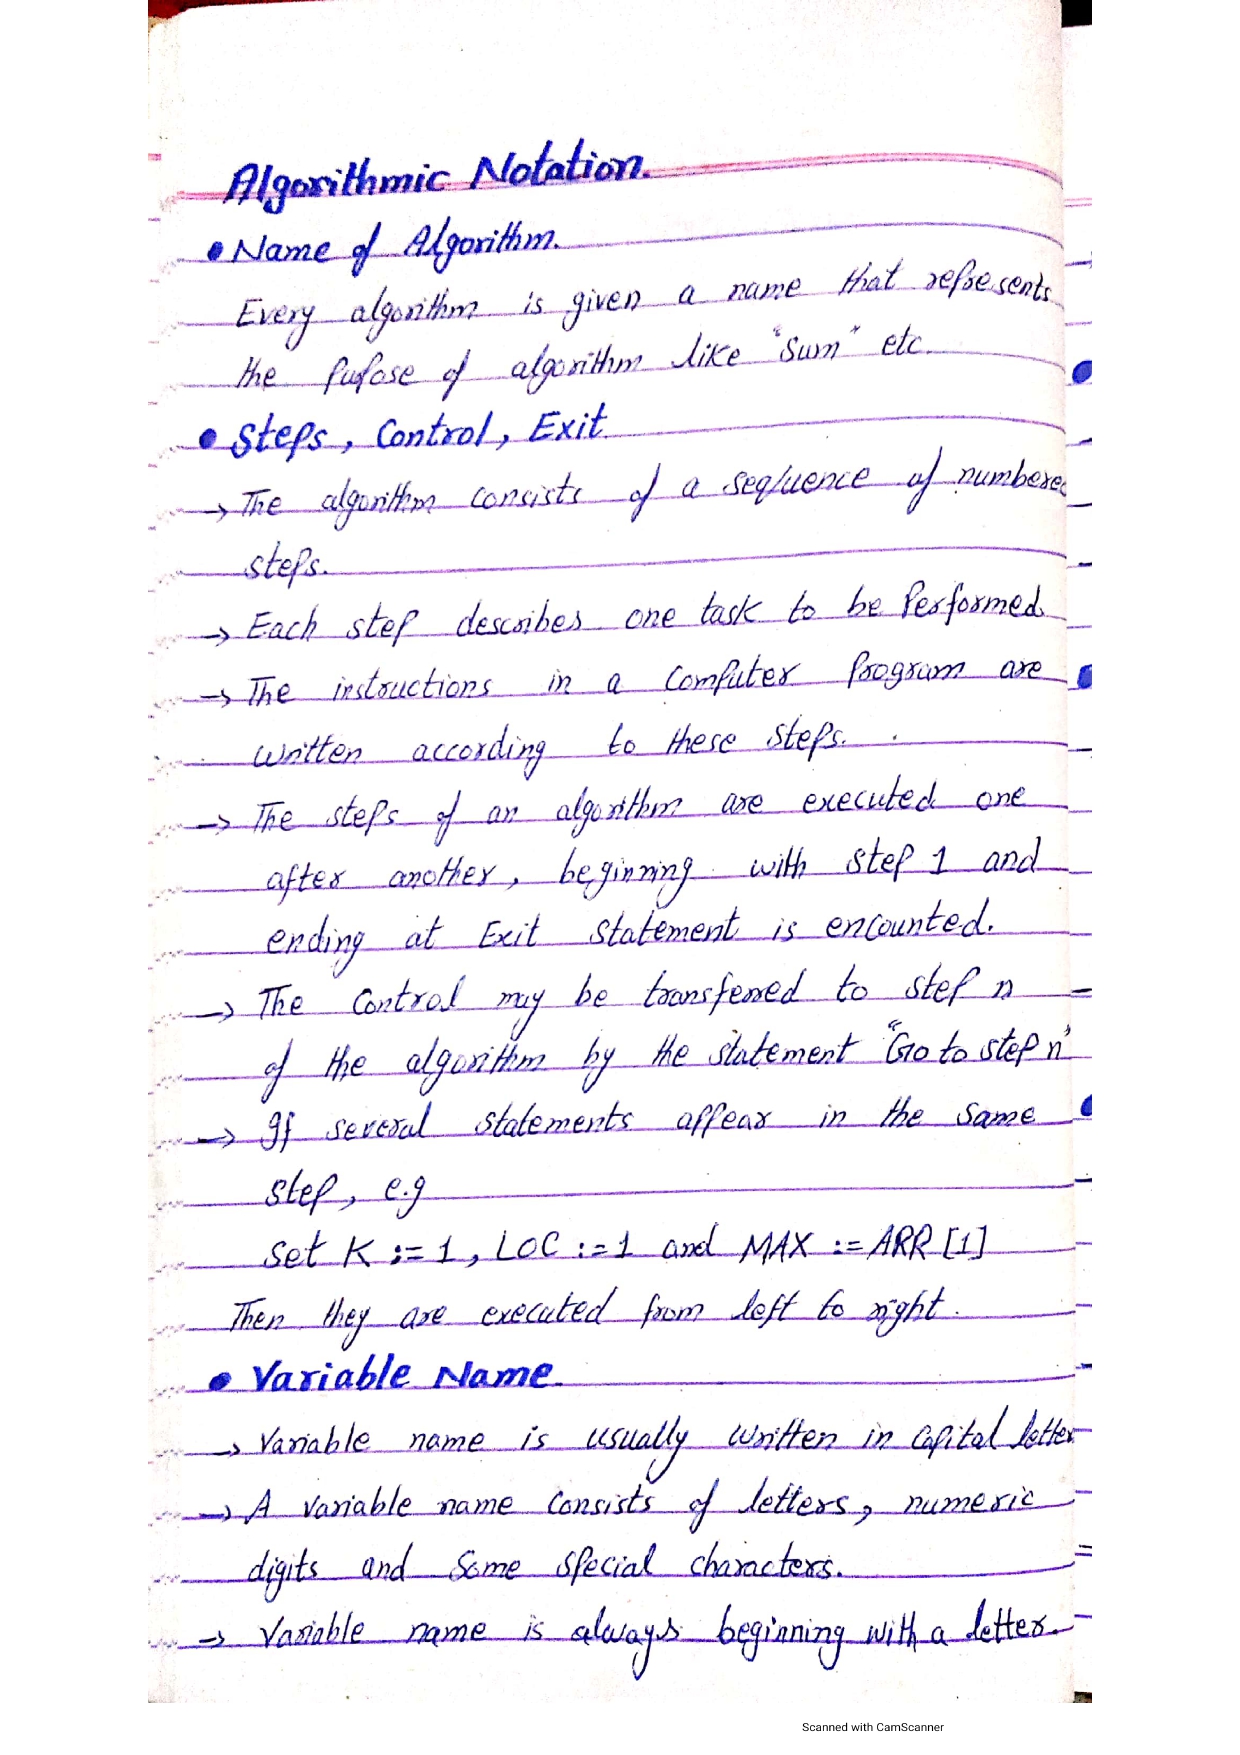 Algorithmic Notation.
• Name of Algorithm.
Every algorithm is given a name that represents
the pupose of algorithm like "sum" etc.
• Steps, Control, Exit
→ The algorithm consists of a sequence of numbered
steps.
→ Each step describes one task to be performed.
→ The instructions in a computer program are
written according to these steps.
→ The steps of an algorithm are executed one
after another, beginning with step 1 and
ending at Exit statement is encounted.
→ The control may be transferred to step n
of the algorithm by the statement "Go to step n"
→ If several statements appear in the same
step, e.g
set K := 1, LOC := 1 and MAX := ARR [1]
Then they are executed from left to right.
• Variable Name.
→ Variable name is usually written in capital letter
→ A variable name consists of letters, numeric
digits and some special characters.
→ Variable name is always beginning with a letter.
Scanned with CamScanner